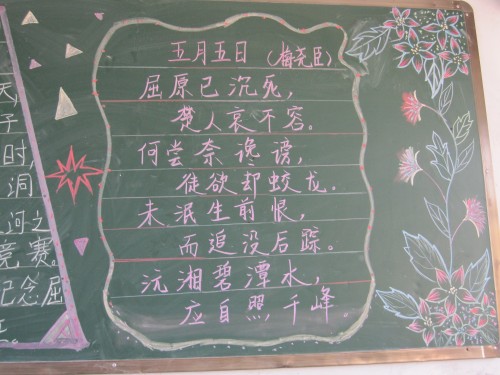 天,
子
时,
洞
河之
竞赛。
纪念屈
五月五日 (梅尧臣)
屈原已沉死,
楚人哀不容。
何尝奈谗谤,
徒欲却蛟龙.
未泯生前恨,
而追没后踪。
沅湘碧潭水,
应自照千峰.